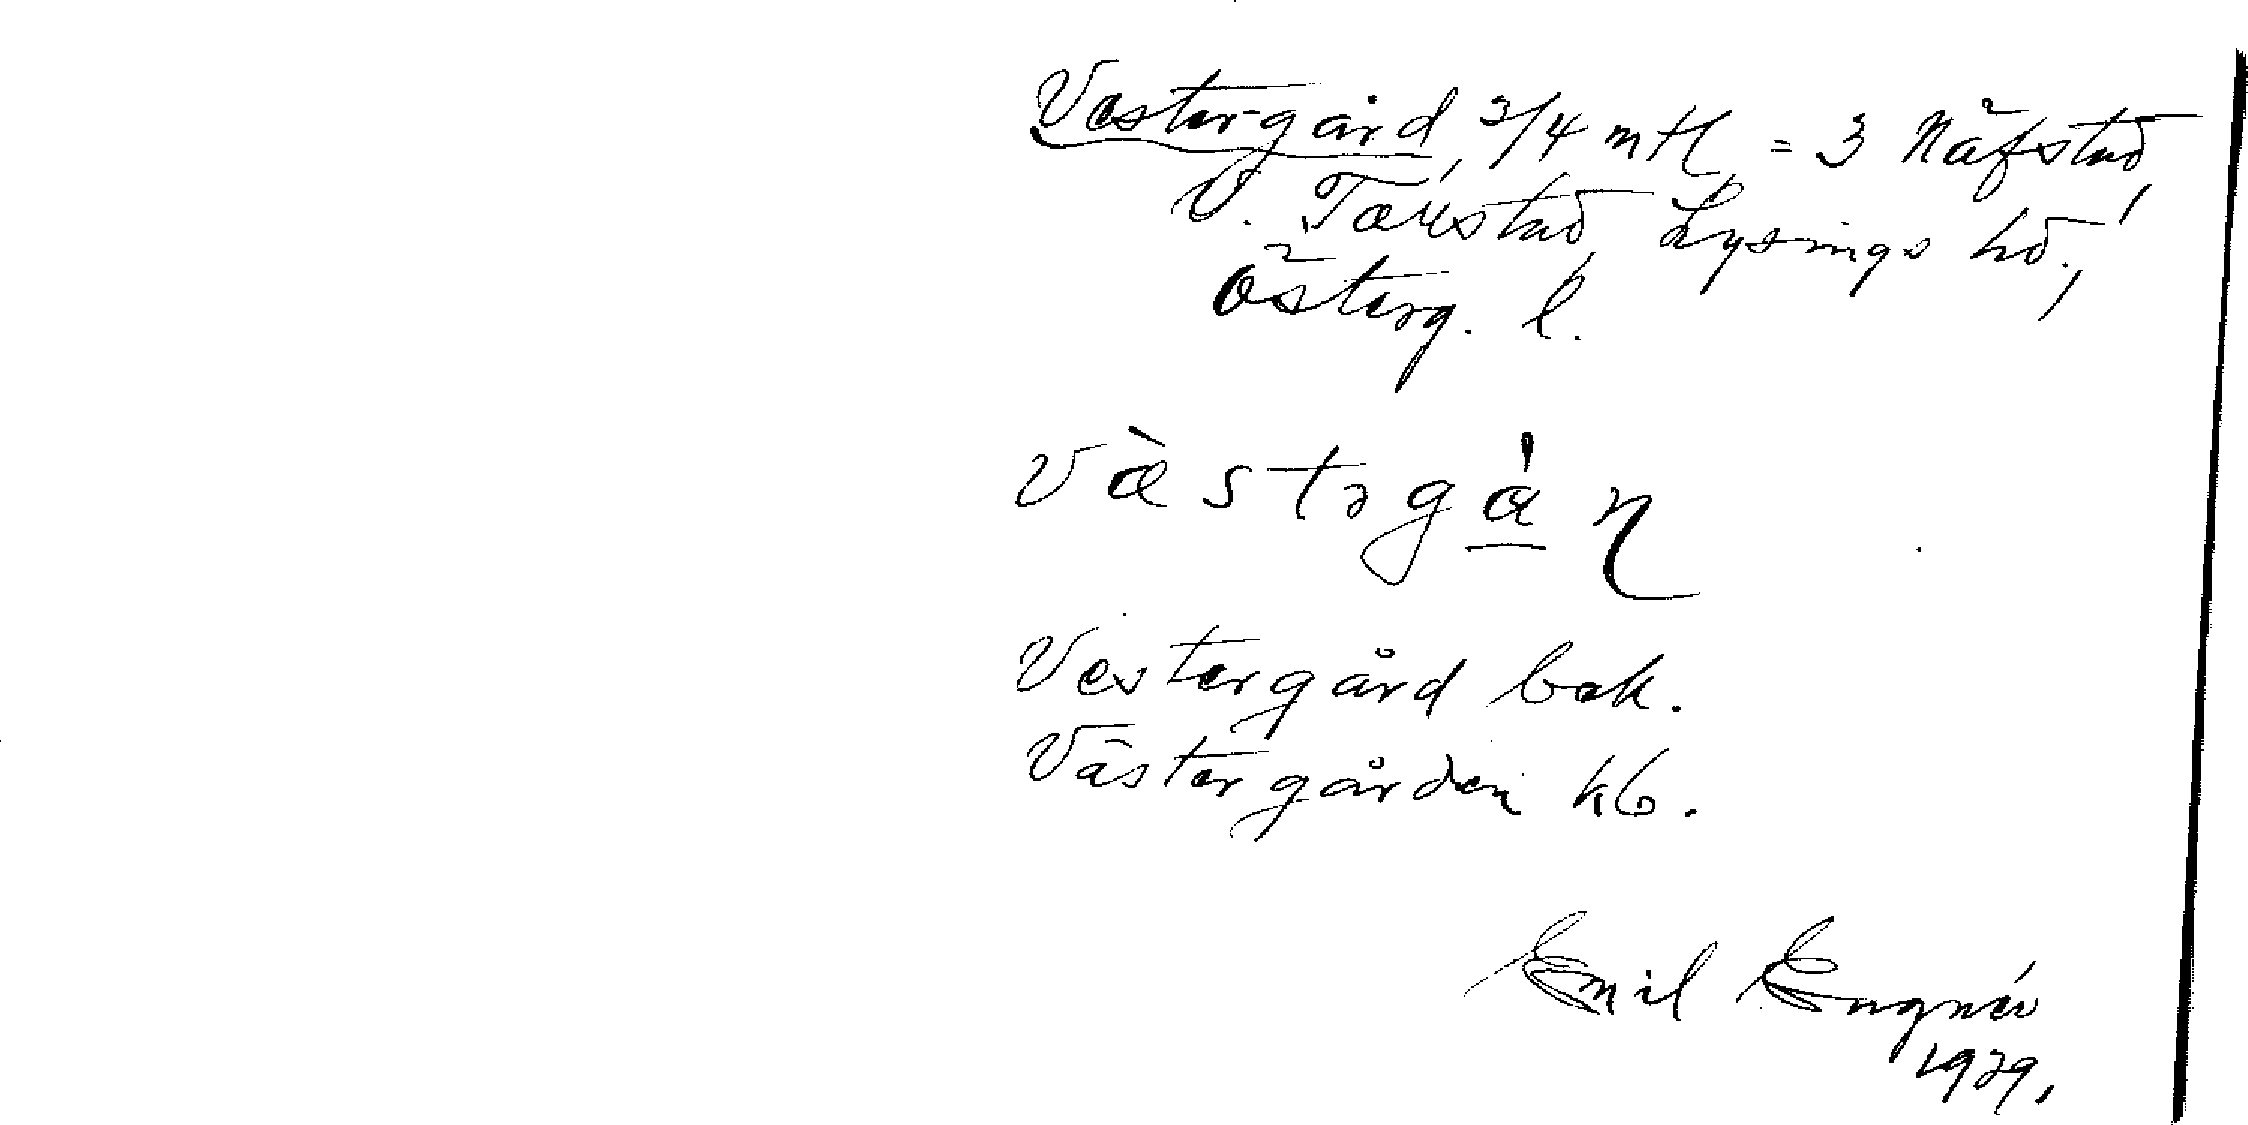 Vestergård, 3/4 mtl = 3 Näfstad,
V. Tollstad, Lysings hd.,
Österg. l.
Væ̀strgὰɳ
Vestergård bok.
Västergården kb.
Emil Engnér
1929.